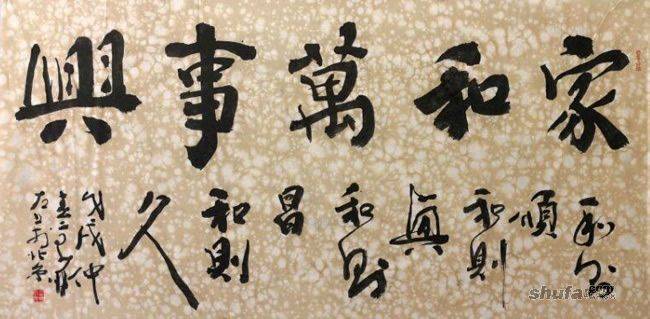 家和萬事興
和則
順
和則
和則
昌
和則
久
戊戌仲
北京
shufa